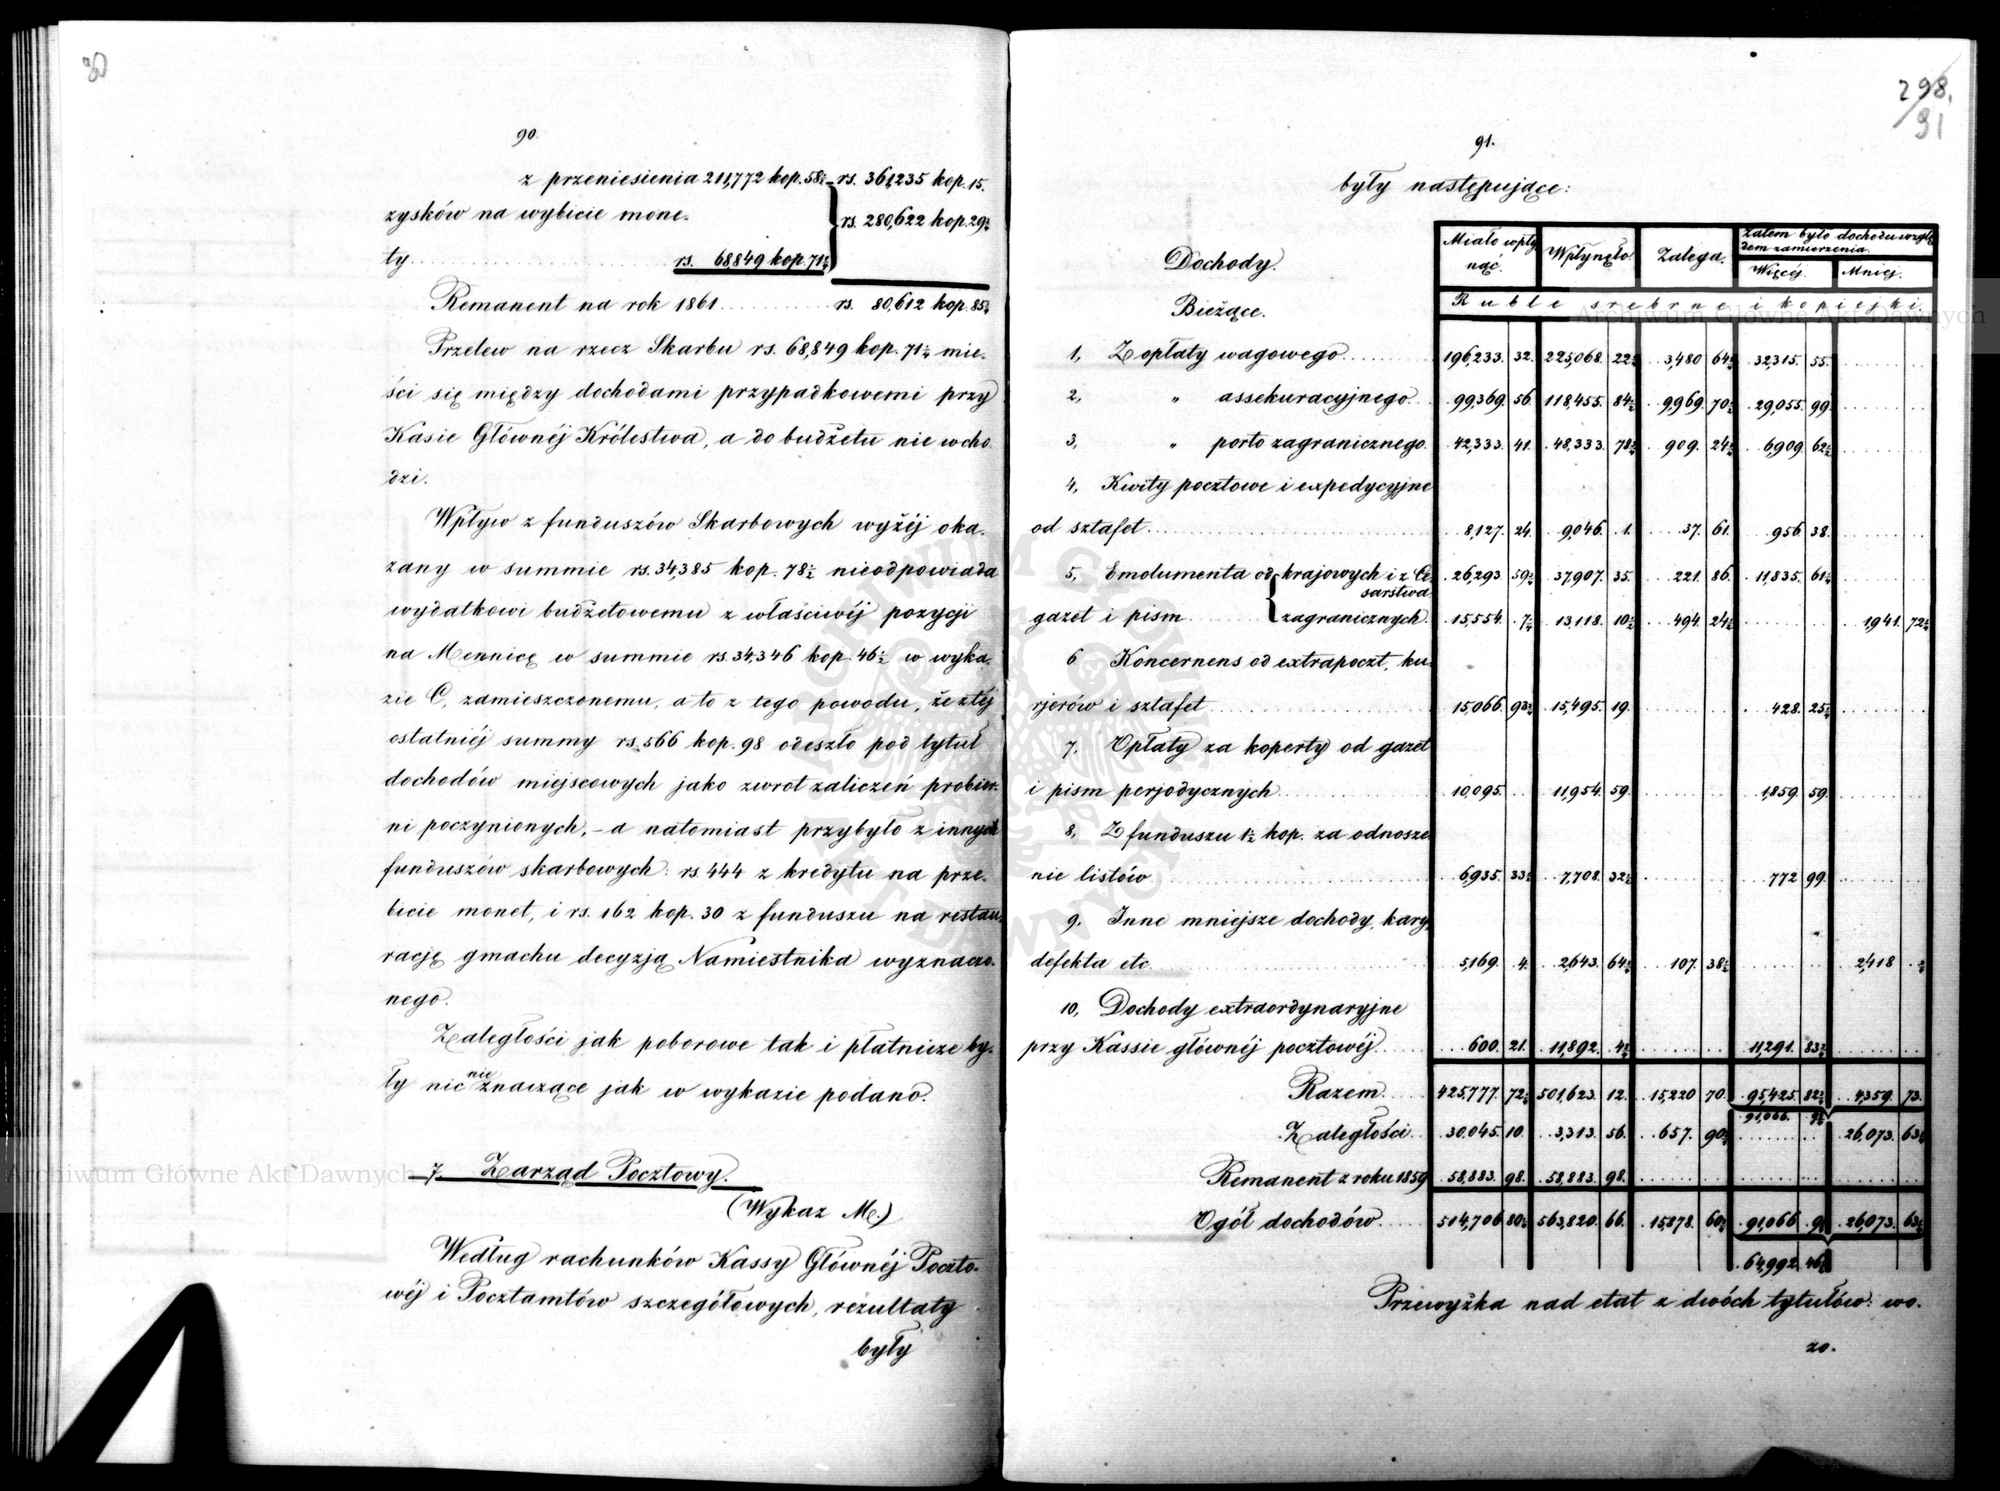 90.
z przeniesienia 211,772 kop. 58½ rs. 361,235 kop. 15.
zysków na wybicie mone-
rs. 280,622 kop. 29½
ty rs. 68849 kop. 71½
Remanent na rok 1861 rs. 80,612 kop. 85½
Przelew na rzecz Skarbu rs. 68,849 kop. 71½ mie-
ści się między dochodami przypadkowemi przy
Kasie Głównéj Królestwa, a do budżetu nie wcho
dzi.
Wpływ z funduszów Skarbowych wyżéj oka-
zany w summie rs. 34,385 kop. 78½ nieodpowiada
wydatkowi budżetowemu z właściwéj pozycji
na Mennicę w summie rs. 34,346 kop. 46½ w wyka-
zie C, zamieszczonemu, a to z tego powodu, że z téj
ostatniéj summy rs. 566 kop. 98 odeszło pod tytuł
dochodów miejscowych jako zwrot zaliczeń probier-
ni poczynionych, - a natomiast przybyło z innych
funduszów skarbowych: rs 444 z kredytu na prze-
bicie monet, i rs. 162 kop. 30 z funduszu na restau-
rację gmachu decyzją Namiestnika wyznaczo-
nego.
Zaległości jak poborowe tak i płatnicze by-
ły nic nie znaczące jak w wykazie podano.
7. Zarząd Pocztowy.
(Wykaz M.)
Według rachunków Kassy Głównéj Poczto-
wéj i Pocztamtów szczegółowych, rezultaty
były
298.
91
91.
były następujące:
Dochody. Miało wpły nąć. Wpłynęło. Zalega. Zatem było dochodu wzglę dem zamierzenia
Więcéj. Mniej.
Bieżące. Ruble srebrne i kopiejki.
1, Z opłaty wagowego 196,233. 32. 225,068. 22½ 3,480 64½ 32,315. 55.
2, " assekuracyjnego 99,369. 56. 118,455. 84½ 9,969. 70½ 29,055. 99.
3, " porto zagranicznego 42,333. 41. 48,333. 78½ 909. 24½ 6,909. 62½
4, Kwity pocztowe i expedycyjne
od sztafet 8,127. 24. 9,046. 1. 37. 61. 956 38.
5, Emolumenta od krajowych i z Ce sarstwa 26,293. 59½ 37,907. 35. 221. 86. 11,835. 61½
gazet i pism zagranicznych 15,554. 7½ 13,118. 10½ 494. 24½ 1,941. 72½
6 Koncernens od extrapoczt, ku-
rjerów i sztafet 15,066. 93½ 15,495. 19. 428. 25½
7. Opłaty za koperty od gazet
i pism perjodycznych 10,095. 11,954. 59. 1,859 59.
8, Z funduszu 1½ kop. za odnosze
nie listów 6,935. 33½ 7,708. 32½ 772 99.
9, Inne mniejsze dochody, kary,
defekta etc. 5,169. 4. 2,643. 64½ 107. 38½ 2,418 ½
10, Dochody extraordynaryjne
przy Kassie głównéj pocztowéj 600. 21. 11,892. 4½ 11,291. 83½
Razem 425,777. 72½ 501,623. 12. 15,220 70. 95,425. 82½ 4,359. 73.
91,066. 9½
Zaległości 30,045. 10. 3,313. 56. 657. 90½ 26,073. 63½
Remanent z roku 1859 58,883. 98. 58,883. 98.
Ogół dochodów 514,706 80½ 563,820. 66. 15,878. 60½ 91,066 9½ 26,073. 63½
64,992. 46½
Przewyżka nad etat z dwóch tytułów: wo-
zo.
Archiwum Główne Akt Dawnych
Archiwum Główne Akt Dawnych
ARCHIWUM GŁÓWNE AKT DAWNYCH